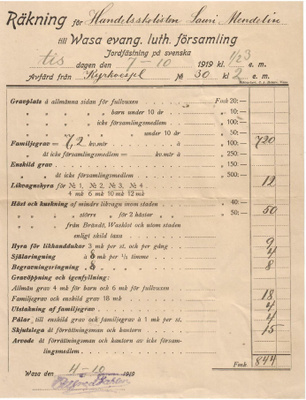 Räkning för Handelsskolisten Sauri Mendelin
till Wasa evang. luth. församling
Jordfästning på svenska
tis dagen den 7-10 1919 kl. 1/23 e.m.
Avfärd från № 30 kl 2 e.m.
Gravplats å allmänna sidan för fullvuxen Fmk 20:—
barn under 10 år 10:—
icke församlingsmedlem 40:—
under 10 år
Familjegrav — 7,2 kv.mtr à 100:— 720
åt icke församlingsmedlem — kv.mtr à
Enskild grav
åt icke församlingsmedlem
Likvagnshyra för № 1, № 2, № 3, № 4 12
4 mk 6 mk 10 mk 12 mk
Häst och kuskning af mindre likvagn inom staden 50
större för 2 hästar
från Brändö, Wasklot och utom staden
enligt skild taxa
Hyra för likhanddukar 3 mk per st. och per gång 9
Själaringning à 8 mk per ½ timme 4
Begravningsringning à 8 mk 8
Gravöppning och igenfyllning:
Allmän grav 4 mk för barn och 6 mk för fullvuxen
Familjegrav och enskild grav 18 mk 18
Utstakning af familjegrav 4
Pålar till enskild grav och familjegrav à 1 mk per st. 4
Skjutslega åt förrättningsman och kantorn 15
Arvode åt förrättningsman och kantorn av icke församlingsmedlem
Fmk 844
Wasa d. 4-10 1919